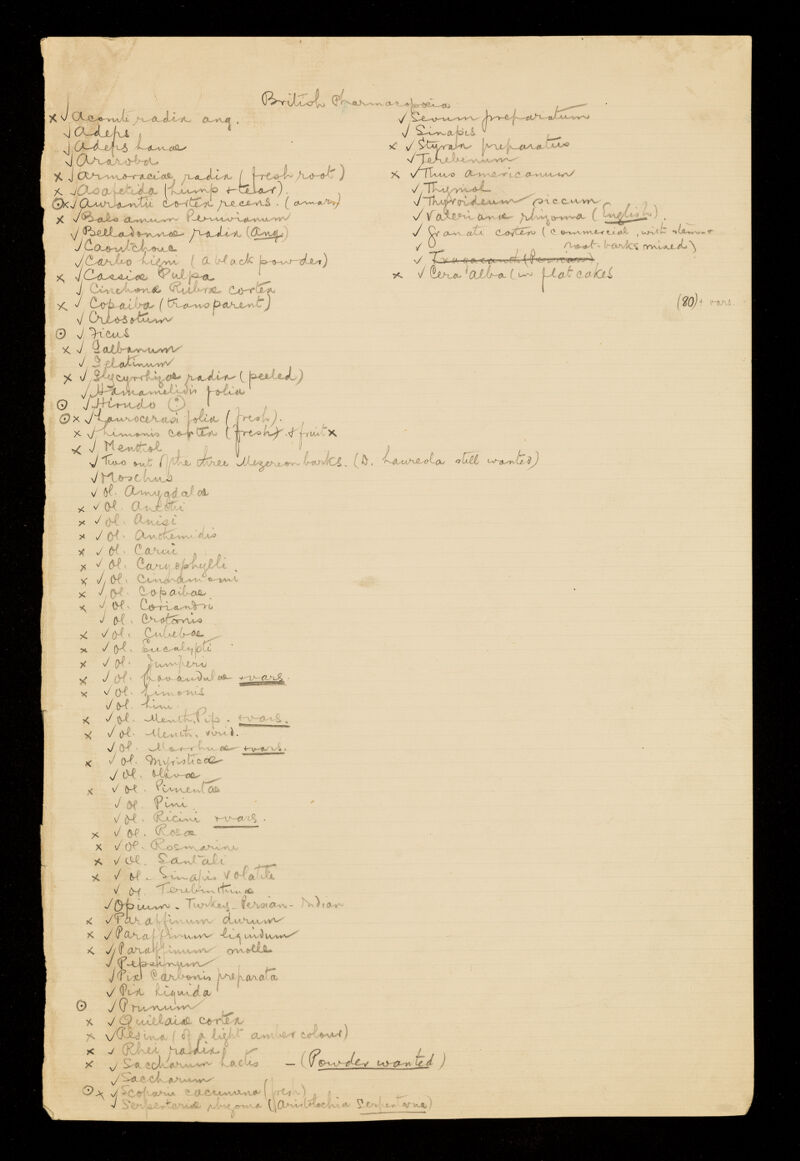 British Pharmacopoeia
× ✓ Aconiti radix ang.
✓ Adeps
✓ Adeps Lanae
✓ Araroba
× ✓ Armoraciae radix (fresh root)
× ✓ Asafetida (lump + tear)
⊙ × ✓ Aurantii cortex recens. (amara)
× ✓ Balsamum Peruvianum
✓ Belladonnae radix (Ang.)
✓ Caoutchouc
✓ Carbo Ligni (a black powder)
× ✓ Cassiae Pulpa
✓ Cinchonae Rubrae cortex
× ✓ Copaiba (transparent)
✓ Creosotum
⊙ ✓ Ficus
× ✓ Galbanum
✓ Gelatinum
× ✓ Glycyrrhizae radix (peeled)
✓ Hamamelidis folia
⊙ ✓ Hirudo
⊙ × ✓ Laurocerasi folia (fresh).
× ✓ Limonis cortex (fresh) + fruit ×
× ✓ Menthol
✓ Two out of the three Mezereon barks. (D. Laureola still wanted)
✓ Moschus
✓ Ol. Amygdalae
× ✓ Ol. Anethi
× ✓ Ol. Anisi
× ✓ Ol. Anthemidis
× ✓ Ol. Carui
× ✓ Ol. Caryophylli.
× ✓ Ol. Cinnamomi
× ✓ Ol. Copaibae
× ✓ Ol. Coriandri
✓ Ol. Crotonis
× ✓ Ol. Cubebae
× ✓ Ol. Eucalypti
× ✓ Ol. Juniperi
× ✓ Ol. Lavandulae + vars.
× ✓ Ol. Limonis
✓ Ol. Lini.
× ✓ Ol. Menth. Pip. + vars.
× ✓ Ol. Menth. virid.
✓ Ol. Morrhuae + vars.
× ✓ Ol. Myristicae
✓ Ol. Olivae
× ✓ Ol. Pimentae
✓ Ol. Pini
✓ Ol. Ricini + vars.
× ✓ Ol. Rosae
× ✓ Ol. Rosmarini
× ✓ Ol. Santali
× ✓ Ol. Sinapis Volatile
✓ Ol. Terebinthinae
✓ Opium - Turkey - Persian - Indian
× ✓ Paraffinum durum
× ✓ Paraffinum liquidum
× ✓ Paraffinum molle
✓ Pepsinum
✓ Pix Carbonis preparata
✓ Pix Liquida
⊙ ✓ Prunum
× ✓ Quillaiae cortex
× ✓ Resina (of a light amber colour)
× ✓ Rhei radix
× ✓ Saccharum Lactis - (Powder wanted)
✓ Saccharum
⊙ × ✓ Scoparii cacumina (fresh)
✓ Serpentariae rhizoma (Aristolochia Serpentaria)
✓ Sevum preparatum
✓ Sinapis
× ✓ Styrax preparatus
✓ Terebenum
× ✓ Thus americanum
✓ Thymol
✓ Thyroideum siccum
✓ Valerianae rhizoma (English).
✓ Granati cortex (commercial, with stem +
✓ root-barks mixed)
✓ Tragacanth (Persian)
× ✓ Cera alba (in flat cakes
(80) + vars.